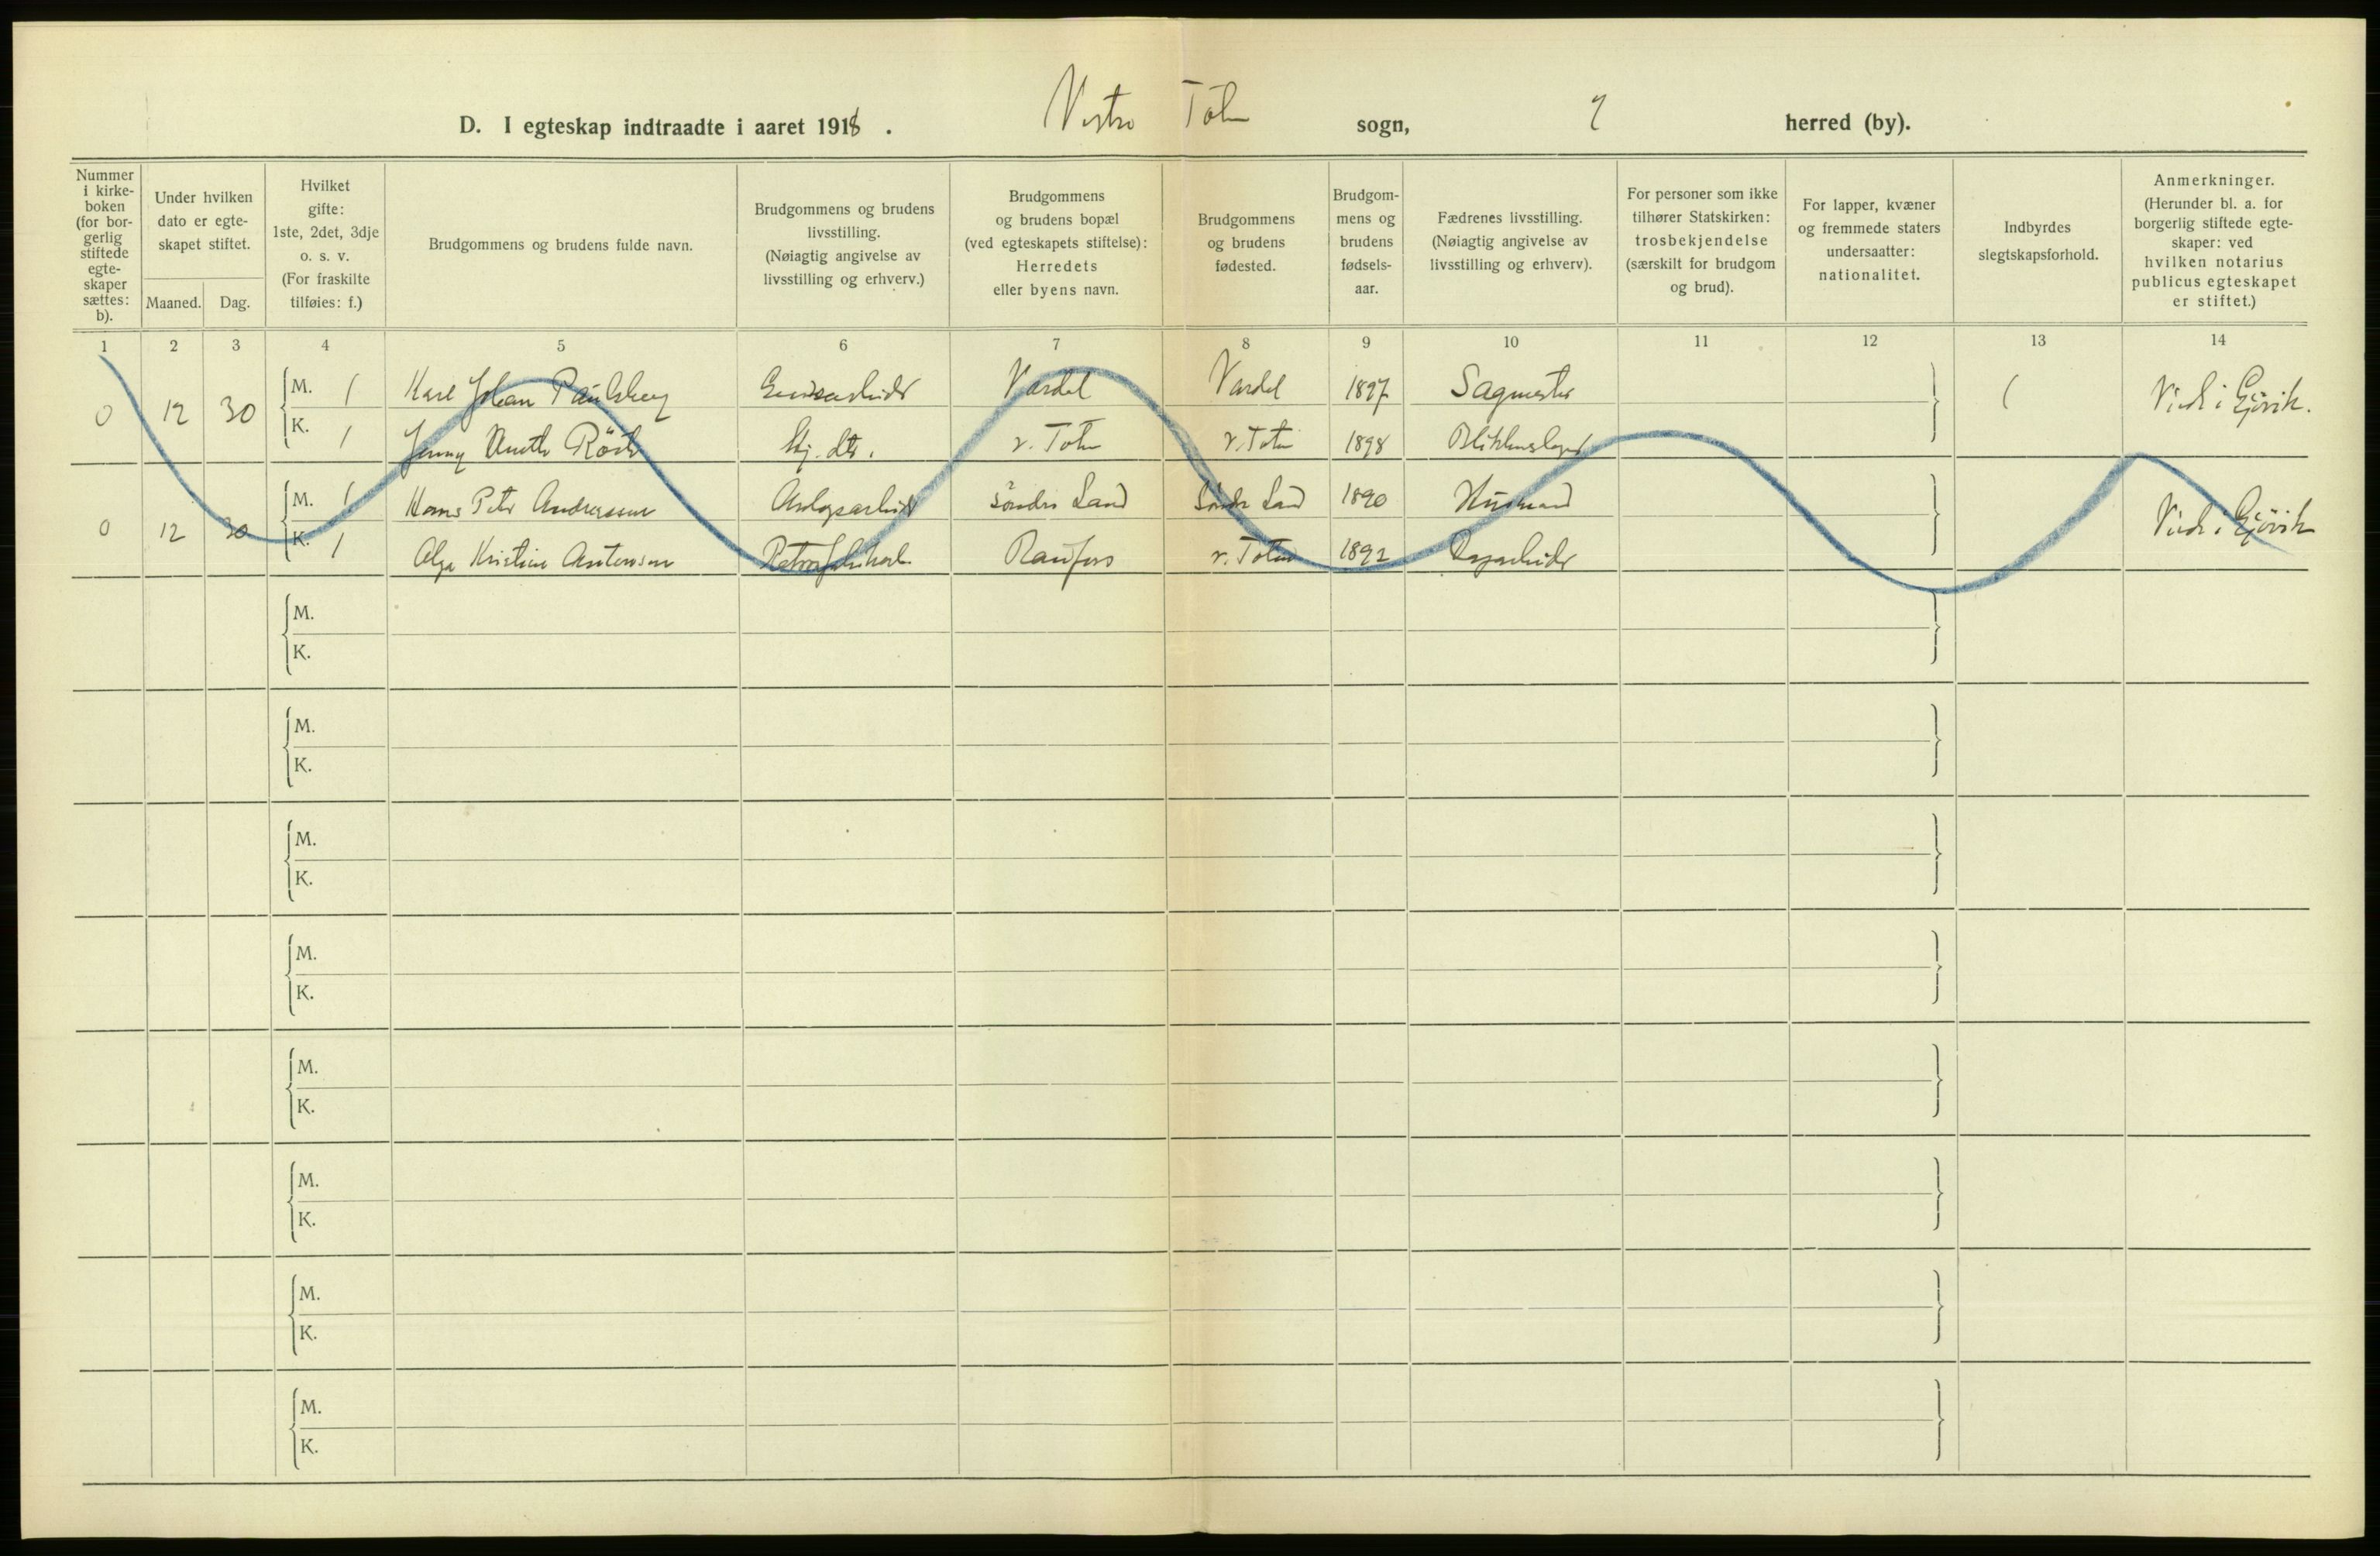 D. I egteskap indtraadte i aaret 1918. Vestre Toten sogn, herred (by).
Nummer i kirke-boken (for bor-gerlig stiftede egte-skaper sættes: b).
Under hvilken dato er egte-skapet stiftet.
Maaned. Dag.
Hvilket gifte: 1ste, 2det, 3dje o. s. v. (For fraskilte tilføies: f.)
Brudgommens og brudens fulde navn.
Brudgommens og brudens livsstilling. (Nøiagtig angivelse av livsstilling og erhverv.)
Brudgommens og brudens bopæl (ved egteskapets stiftelse): Herredets eller byens navn.
Brudgommens og brudens fødested.
Brudgom-mens og brudens fødsels-aar.
Fædrenes livsstilling. (Nøiagtig angivelse av livsstilling og erhverv).
For personer som ikke tilhører Statskirken: trosbekjendelse (særskilt for brudgom og brud).
For lapper, kvæner og fremmede staters undersaatter: nationalitet.
Indbyrdes slegtskapsforhold.
Anmerkninger. (Herunder bl. a. for borgerlig stiftede egte-skaper: ved hvilken notarius publicus egteskapet er stiftet.)
1 2 3 4 5 6 7 8 9 10 11 12 13 14
0 12 30 M. 1 Karl Johan Paulsberg Vardal Vardal 1897 Sagmester Viede i Gjövik.
K. 1 Jenny Röste Hj. dtr. v. Toten v. Toten 1898 Blikkenslager
0 12 30 M. 1 Hans Peter Andreassen Anlegsarbeider Söndre Land Söndre Land 1890 Husmand Viede i Gjövik
K. 1 Olga Kristine Antonsen Raufoss v. Toten 1892 Dagarbeider
M.
K.
M.
K.
M.
K.
M.
K.
M.
K.
M.
K.
M.
K.
M.
K.